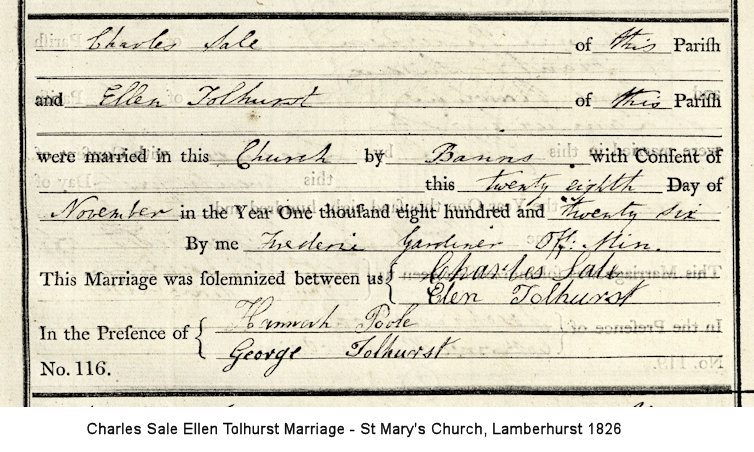 Charles Sale of this Pariſh
and Ellen Tolhurst of this Pariſh
were married in this Church by Banns with Conſent of
this twenty eighth Day of
November in the Year One thouſand eight hundred and twenty six
By me Frederic Gardiner Off: Min.
This Marriage was ſolemnized between us { Charles Sale
Elen Tolhurst
In the Preſence of { Hannah Poole
George Tolhurst
No. 116.
Charles Sale Ellen Tolhurst Marriage - St Mary's Church, Lamberhurst 1826